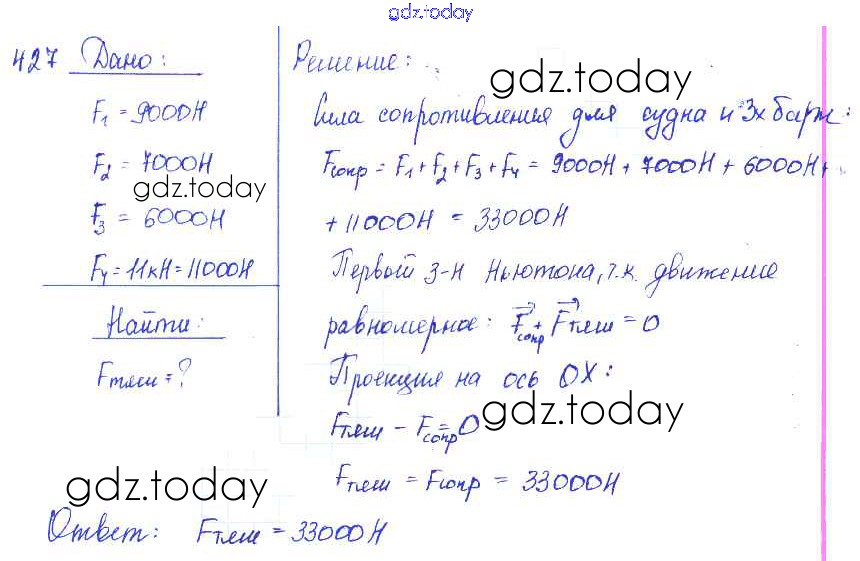 gdz.today
427 Дано:
F₁ = 9000Н
F₂ = 7000Н
gdz.today
F₃ = 6000Н
F₄ = 11кН = 11000Н
Найти:
Fтяги = ?
Решение:
gdz.today
Сила сопротивления для судна и 3х барж:
Fсопр = F₁ + F₂ + F₃ + F₄ = 9000Н + 7000Н + 6000Н +
+ 11000Н = 33000Н
Первый з-н Ньютона, т.к. движение
равномерное: F⃗сопр + F⃗тяги = 0
Проекция на ось OX:
gdz.today
Fтяги - Fсопр = 0
Fтяги = Fсопр = 33000Н
gdz.today
Ответ: Fтяги = 33000Н